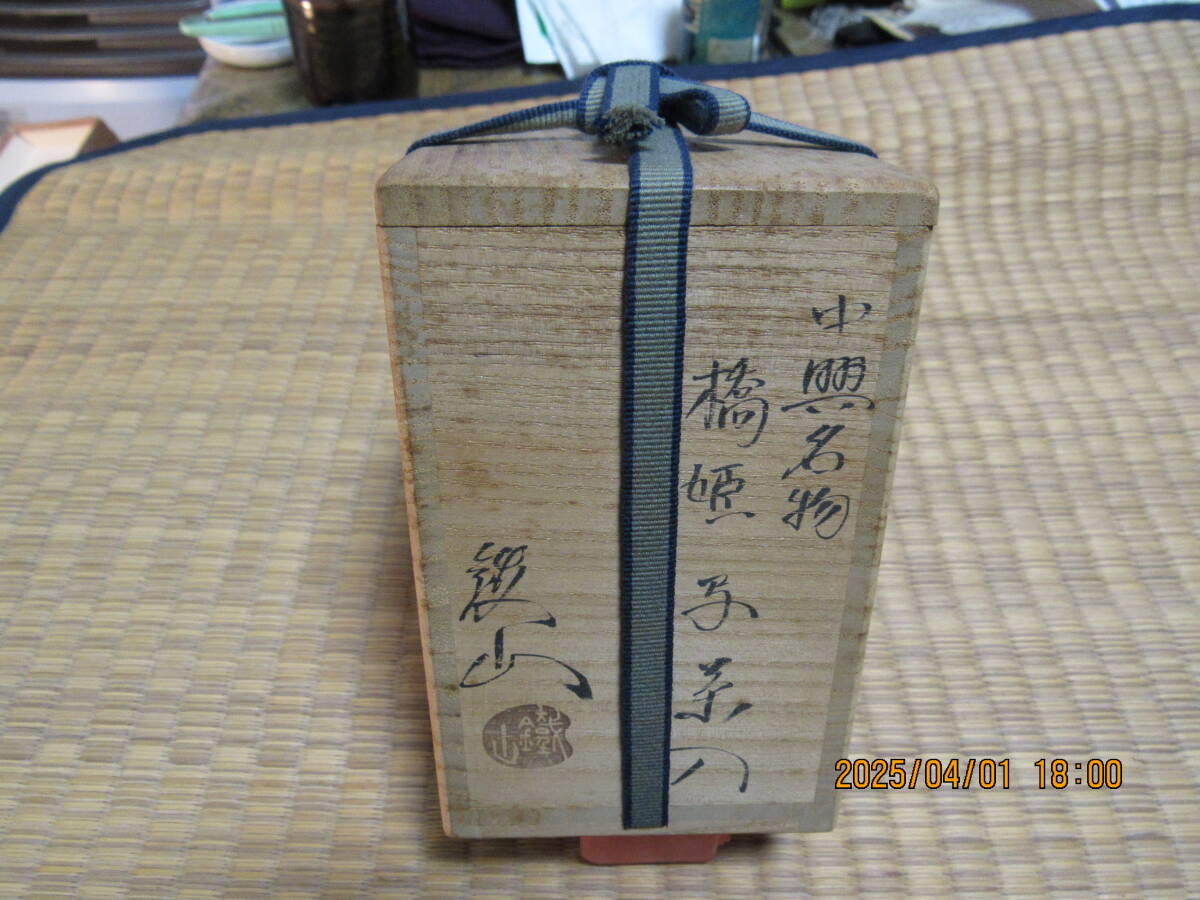 中興名物
橋姫子茶入
鐵山
鐵山
2025/04/01 18:00